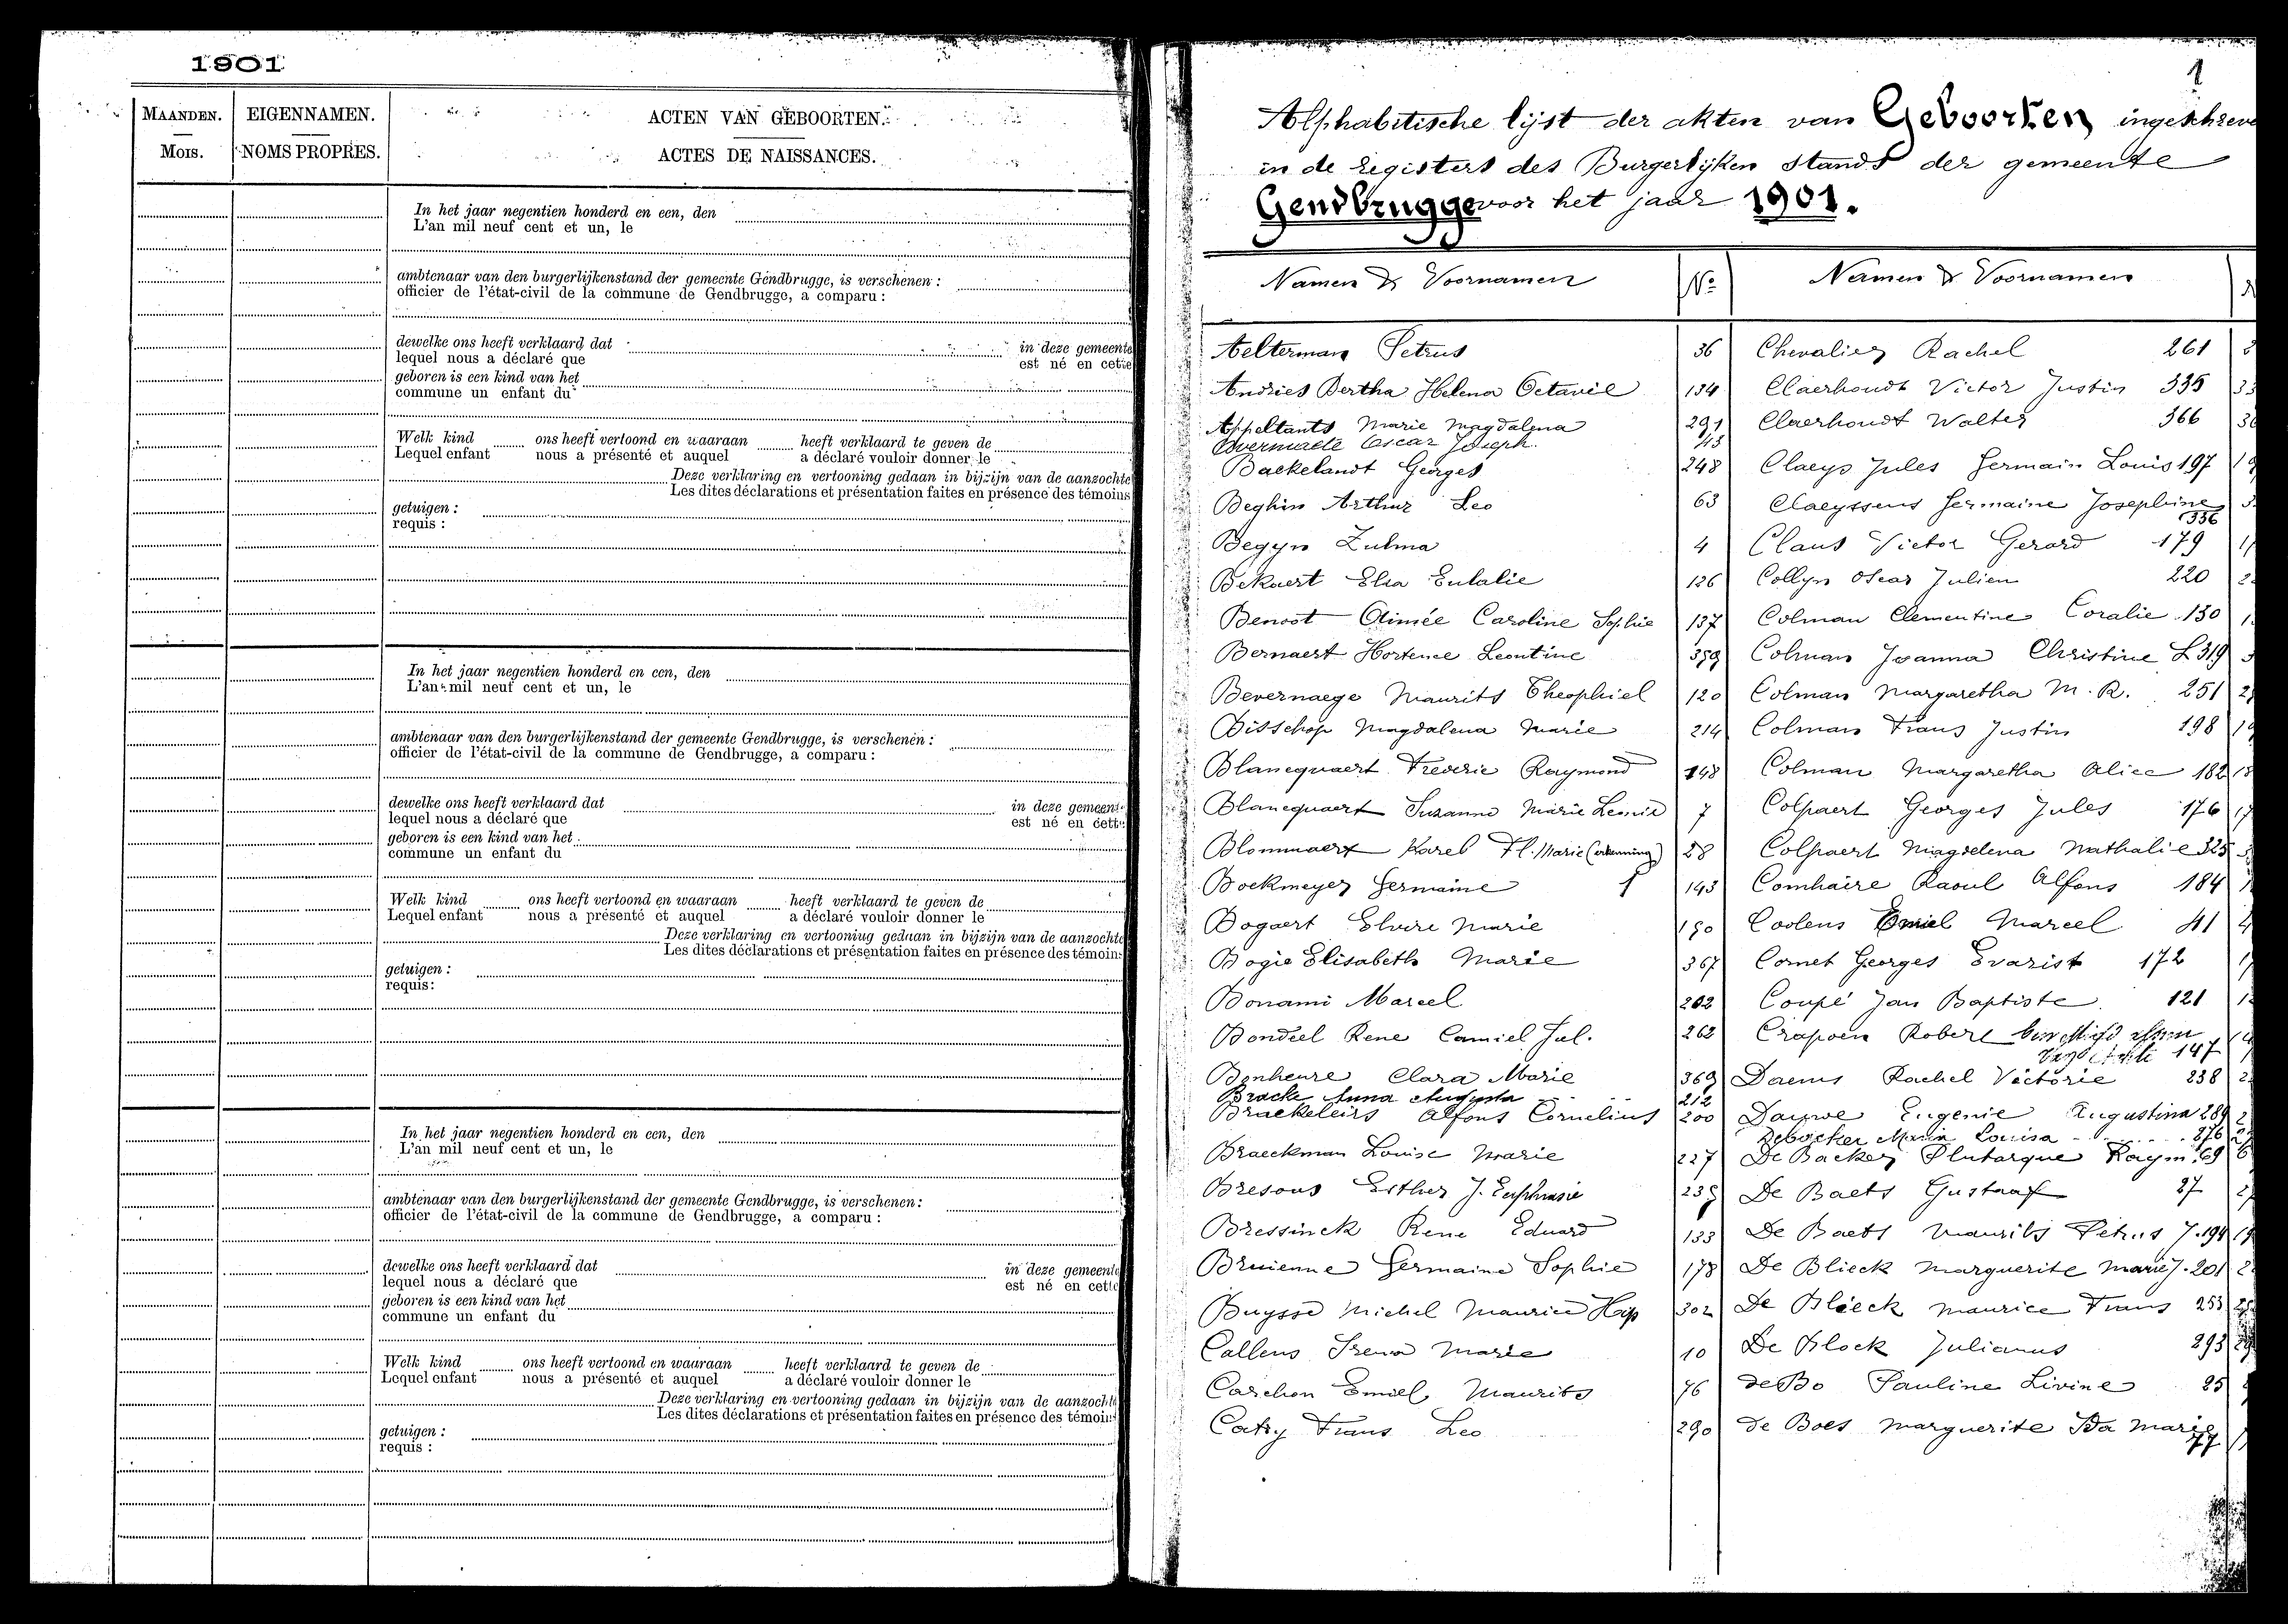 1901
MAANDEN.
Mois.
EIGENNAMEN.
NOMS PROPRES.
ACTEN VAN GEBOORTEN.
ACTES DE NAISSANCES.
In het jaar negentien honderd en een, den
L'an mil neuf cent et un, le
ambtenaar van den burgerlijkenstand der gemeente Gendbrugge, is verschenen :
officier de l'état-civil de la commune de Gendbrugge, a comparu :
dewelke ons heeft verklaard dat in deze gemeente
lequel nous a déclaré que est né en cette
geboren is een kind van het
commune un enfant du
Welk kind ons heeft vertoond en waaraan heeft verklaard te geven de
Lequel enfant nous a présenté et auquel a déclaré vouloir donner le
Deze verklaring en vertooning gedaan in bijzijn van de aanzochte
Les dites déclarations et présentation faites en présence des témoins
getuigen :
requis :
In het jaar negentien honderd en een, den
L'an mil neuf cent et un, le
ambtenaar van den burgerlijkenstand der gemeente Gendbrugge, is verschenen :
officier de l'état-civil de la commune de Gendbrugge, a comparu :
dewelke ons heeft verklaard dat in deze gemeent
lequel nous a déclaré que est né en cett
geboren is een kind van het
commune un enfant du
Welk kind ons heeft vertoond en waaraan heeft verklaard te geven de
Lequel enfant nous a présenté et auquel a déclaré vouloir donner le
Deze verklaring en vertooning gedaan in bijzijn van de aanzochte
Les dites déclarations et présentation faites en présence des témoin
getuigen :
requis :
In het jaar negentien honderd en een, den
L'an mil neuf cent et un, le
ambtenaar van den burgerlijkenstand der gemeente Gendbrugge, is verschenen :
officier de l'état-civil de la commune de Gendbrugge, a comparu :
dewelke ons heeft verklaard dat in deze gemeente
lequel nous a déclaré que est né en cette
geboren is een kind van het
commune un enfant du
Welk kind ons heeft vertoond en waaraan heeft verklaard te geven de
Lequel enfant nous a présenté et auquel a déclaré vouloir donner le
Deze verklaring en vertooning gedaan in bijzijn van de aanzocht
Les dites déclarations et présentation faites en présence des témoin
getuigen :
requis :
1
Alphabetische lijst der akten van Geboorten ingeschreve
in de registers des Burgerlijken stands der gemeente
Gendbrugge voor het jaar 1901.
Namen & Voornamen Nº
Aelterman Petrus 36
Andries Bertha Helena Octavie 134
Appeltants Marie Magdalena 291
Oscar Joseph.
Backelandt Georges 248
Beghin Arthur Leo 63
Begyn Zulma 4
Bekaert Elsa Eulalie 126
Benoot Aimée Caroline Sophie 137
Bernaert Hortence Leontine 359
Bevernaege Maurits Theophiel 120
Bisschop Magdalena Marie 214
Blancquaert Frederic Raymond 148
Blancquaert Suzanne Marie Leonie 7
Blommaert Karel Fl. Marie (erkenning) 28
Bockmeyer Germaine 143
Bogaert Elvire Marie 190
Bogie Elisabeth Marie 367
Bonami Marcel 202
Bondeel Rene Camiel Jul. 262
Bonheure Clara Marie 369
Bracke Anna Augusta 212
Braekeleirs Alfons Cornelius 200
Braeckman Louise Marie 227
Bresous Esther J. Euphrasie 239
Bressinck Rene Eduard 133
Bruienne Germaine Sophie 178
Buysse Michel Maurice Hip 302
Callens Irena Marie 10
Carchon Emiel Maurits 76
Catry Frans Leo 290
Namen & Voornamen
Chevalier Rachel 261
Claerhoudt Victor Justin 335
Claerhoudt Walter 366
Claeys Jules Germain Louis 197
Claeyssens Germaine Josephine
336
Claus Victor Gerard 179
Collyn Oscar Julien 220
Colman Clementine Coralie 130
Colman Joanna Christine L 319
Colman Margaretha M. R. 251
Colman Frans Justin 198
Colman Margaretha Alice 182
Colpaert Georges Jules 176
Colpaert Magdelena Nathalie 325
Comhaire Raoul Alfons 184
Coolens Emiel Marcel 41
Cornet Georges Evarist 172
Coupé Jan Baptiste 121
Crapoen Robert
147
Daems Rachel Victorie 238
Dauwe Eugenie Augustina 289
Debacker Maria Louisa 276
De Backer Plutarque Raym. 69
De Baets Gustaaf 27
De Baets Maurits Petrus J. 194
De Blieck Marguerite Marie J. 201
De Blieck Maurice Frans 253
De Block Julianus 293
de Bo Pauline Livine 25
de Boes Marguerite Ida Marie
77